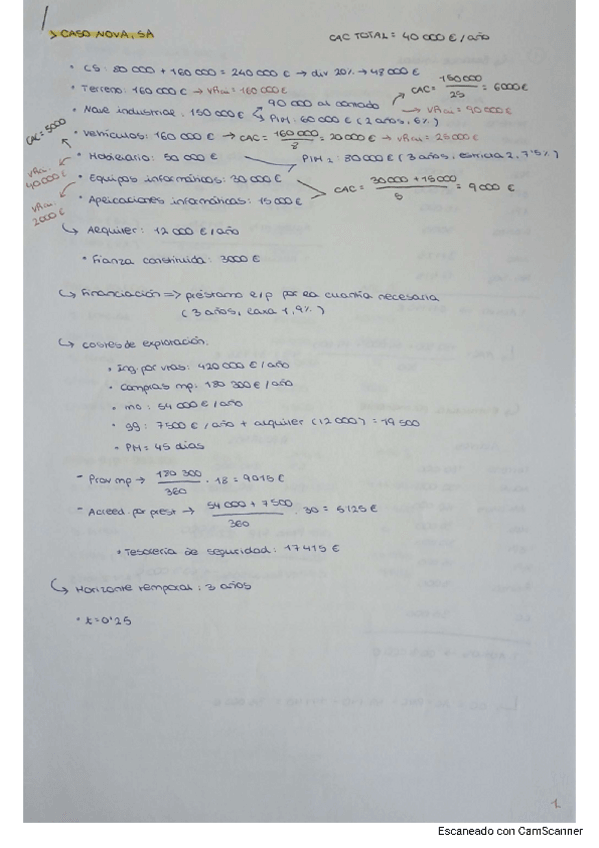 > CASO NOVA, SA
CAC TOTAL = 40 000 € / año
• CS: 80 000 + 160 000 = 240 000 € → div 20% → 48 000 €
• Terreno: 160 000 € → VRcu = 160 000 €
CAC = 150 000 / 25 = 6000 €
• Nave industrial: 150 000 € → 90 000 al contado
→ PIM: 60 000 € (2 años, 6%)
→ VRcu = 90 000 €
CAC = 5000
• Vehículos: 160 000 € → CAC = 160 000 / 8 = 20 000 € → VRcu = 25 000 €
• Mobiliario: 50 000 €
PIM 2: 80 000 € (3 años, 7'5%)
VRcu = 40 000 €
• Equipos informáticos: 30 000 €
CAC = 30 000 + 15 000 / 5 = 9 000 €
VRcu = 2000 €
• Aplicaciones informáticas: 15 000 €
↳ Alquiler: 12 000 € / año
• Fianza constituida: 3000 €
↳ Financiación => préstamo e/p por la cuantía necesaria
(3 años, 9%)
↳ Costes de explotación:
• Ing. por vtas: 420 000 € / año
• Compras mp: 180 300 € / año
• mo: 54 000 € / año
• gg: 7500 € / año + alquiler (12 000) = 19 500
• PM = 45 días
- Prov mp → 180 300 / 360 · 18 = 9015 €
- Acreed. por prest → 54 000 + 7 500 / 360 · 30 = 5125 €
• Tesorería de seguridad: 17 415 €
↳ Horizonte temporal: 3 años
• t = 0'25
1
Escaneado con CamScanner